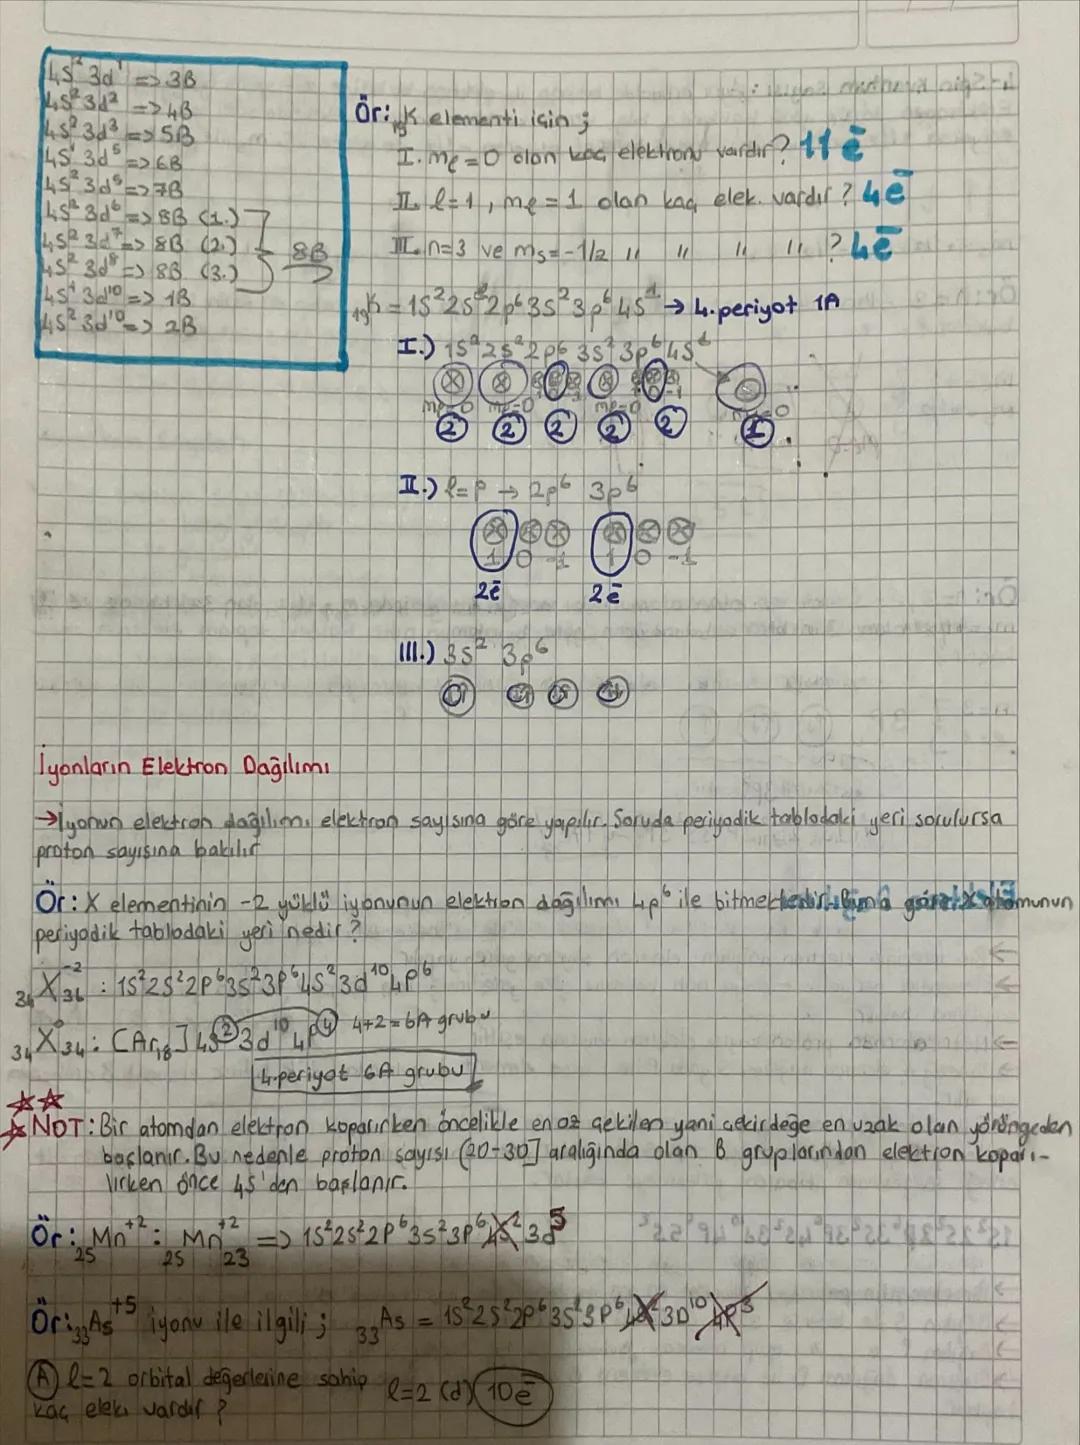 4s² 3d¹ => 3B
4s² 3d² => 4B
4s² 3d³ => 5B
4s¹ 3d⁵ => 6B
4s² 3d⁵ => 7B
4s² 3d⁶ => 8B (1.)
4s² 3d⁷ => 8B (2.)
4s² 3d⁸ => 8B (3.)
8B
4s¹ 3d¹⁰ => 1B
4s² 3d¹⁰ => 2B
Ör: ₁₉K elementi için ;
I. mℓ = 0 olan kaç elektronu vardır? 11 ē
II. ℓ=1, mℓ = 1 olan kaç elek. vardır? 4ē
III. n=3 ve ms = -1/2 " " " " ? 4ē
₁₉K = 1s² 2s² 2p⁶ 3s² 3p⁶ 4s¹ → 4.periyot 1A
I.) 1s² 2s² 2p⁶ 3s² 3p⁶ 4s¹
mℓ=0 mℓ=0 mℓ=0 0 -1 mℓ=0
2 2 2 2 2 1
II.) ℓ=p → 2p⁶ 3p⁶
1 0 -1 1 0 -1
2ē 2ē
III.) 3s² 3p⁶
İyonların Elektron Dağılımı
→İyonun elektron dağılımı elektron sayısına göre yapılır. Soruda periyodik tablodaki yeri sorulursa
proton sayısına bakılır
Ör: X elementinin -2 yüklü iyonunun elektron dağılımı 4p⁶ ile bitmektedir. Buna göre X atomunun
periyodik tablodaki yeri nedir?
₃₄X₃₆⁻² : 1s² 2s² 2p⁶ 3s² 3p⁶ 4s² 3d¹⁰ 4p⁶
₃₄X₃₄⁰ : [Ar₁₈] 4s² 3d¹⁰ 4p⁴ 4+2=6A grubu
4.periyot 6A grubu
NOT: Bir atomdan elektron koparırken öncelikle en az çekilen yani çekirdeğe en uzak olan yörüngeden
başlanır. Bu nedenle proton sayısı (20-30] aralığında olan B gruplarından elektron koparı-
lırken önce 4s'den başlanır.
Ör: ₂₅Mn⁺² : ₂₅Mn₂₃⁺² => 1s² 2s² 2p⁶ 3s² 3p⁶ 4s² 3d⁵
Ör: ₃₃As⁺⁵ iyonu ile ilgili ; ₃₃As = 1s² 2s² 2p⁶ 3s² 3p⁶ 4s² 3D¹⁰ 4p³
A ℓ=2 orbital değerlerine sahip ℓ=2 (d) 10ē
kaç elekt vardır ?